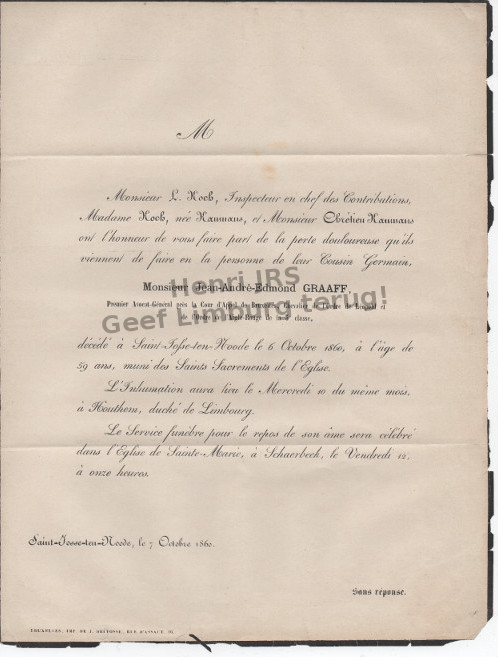 M
Monsieur L. Koch, Inspecteur en chef des Contributions,
Madame Koch, née Naumans, et Monsieur Chrétien Naumans
ont l'honneur de vous faire part de la perte douloureuse qu'ils
viennent de faire en la personne de leur Cousin Germain,
Monsieur Jean-André-Edmond GRAAFF,
Henri JRS
Premier Avocat-Général près la Cour d'Appel de Bruxelles, Chevalier de l'Ordre de Léopold et
Geef Limburg terug!
de l'Ordre de l'Aigle-Rouge de classe,
décédé à Saint-Josse-ten-Noode le 6 Octobre 1860, à l'âge de
59 ans, muni des Saints Sacrements de l'Eglise.
L'Inhumation aura lieu le Mercredi 10 du même mois,
à Houthem, duché de Limbourg.
Le Service funèbre pour le repos de son âme sera célébré
dans l'Eglise de Sainte-Marie, à Schaerbeek, le Vendredi 12,
à onze heures.
Saint-Josse-ten-Noode, le 7 Octobre 1860.
Sans réponse.
BRUXELLES, IMP. DE J. DELFOSSE, RUE D'ASSAUT